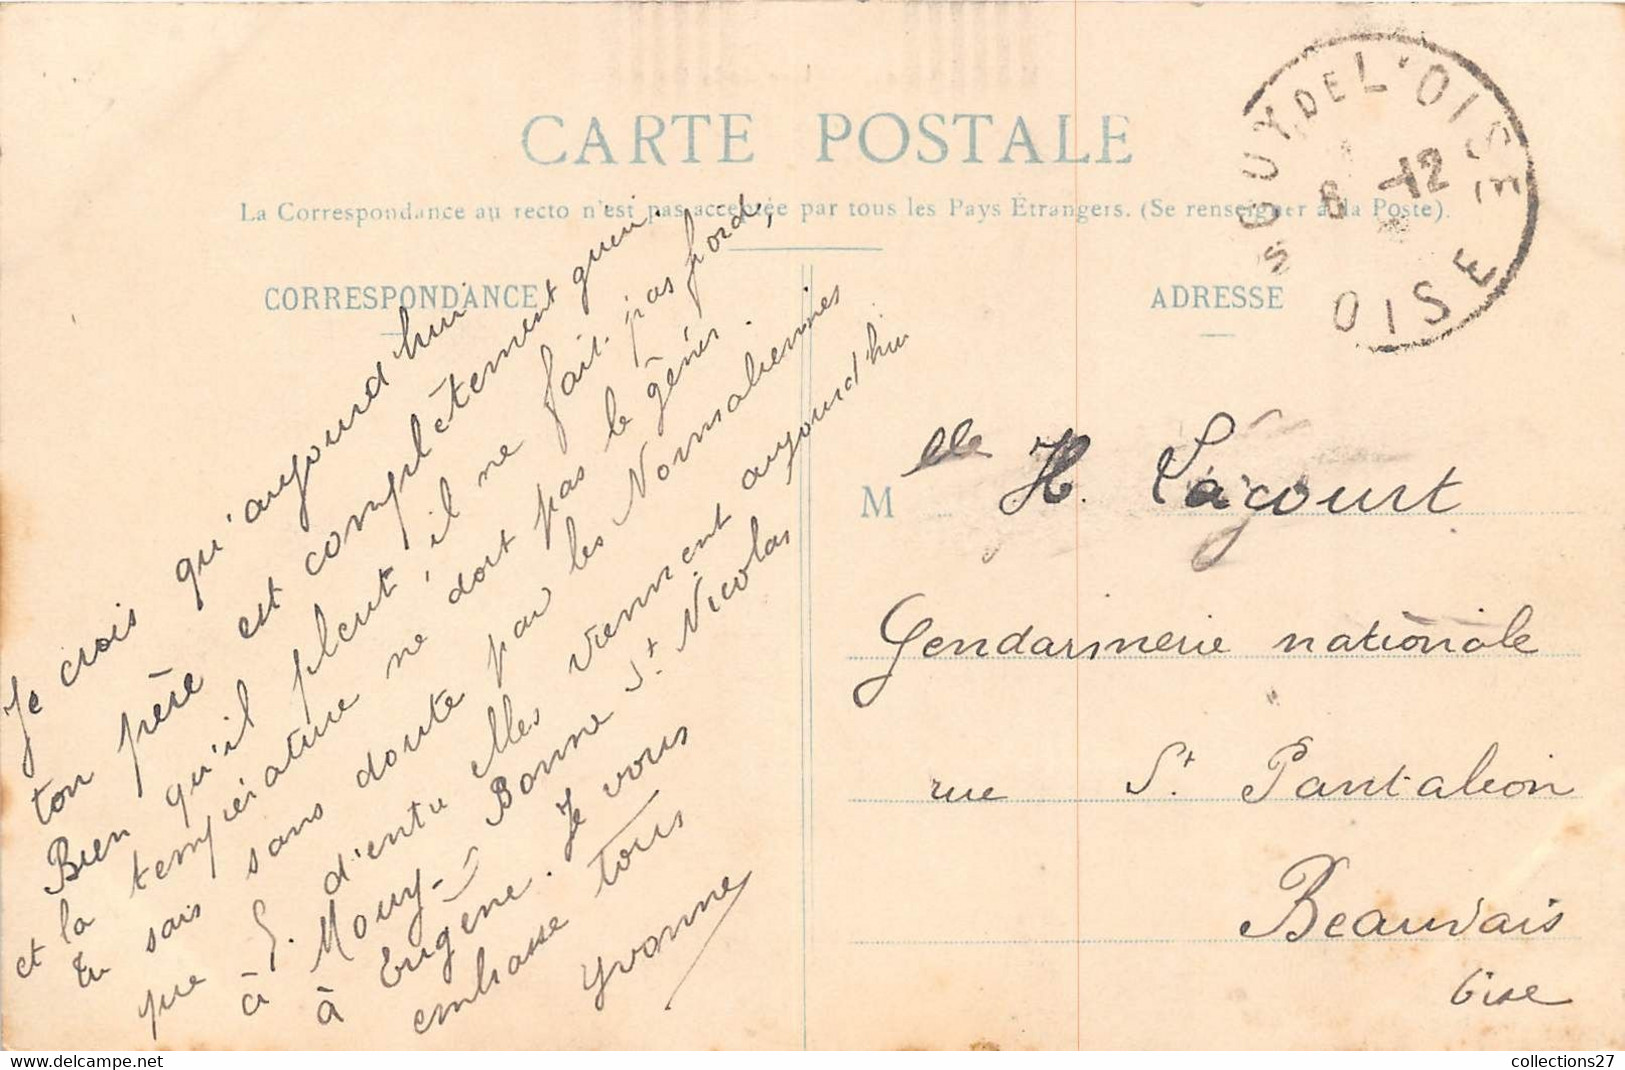 CARTE POSTALE
La Correspondance au recto n'est pas acceptée par tous les Pays Étrangers. (Se renseigner à la Poste).
CORRESPONDANCE
ADRESSE
Je crois qu'aujourd'hui
ton père est complètement guéri.
Bien qu'il pleut il ne fait pas froid,
et la température ne doit pas le gêner.
Tu sais sans doute par les Normaliennes
que d'entre elles viennent aujourd'hui
à Mouy - Bonne St Nicolas
à Eugène. Je vous
embrasse tous
Yvonne
Melle H. Lacourt
Gendarmerie nationale
rue St Pantaléon
Beauvais
Oise
GUY DE L'OISE
6 -12
OISE
collections27